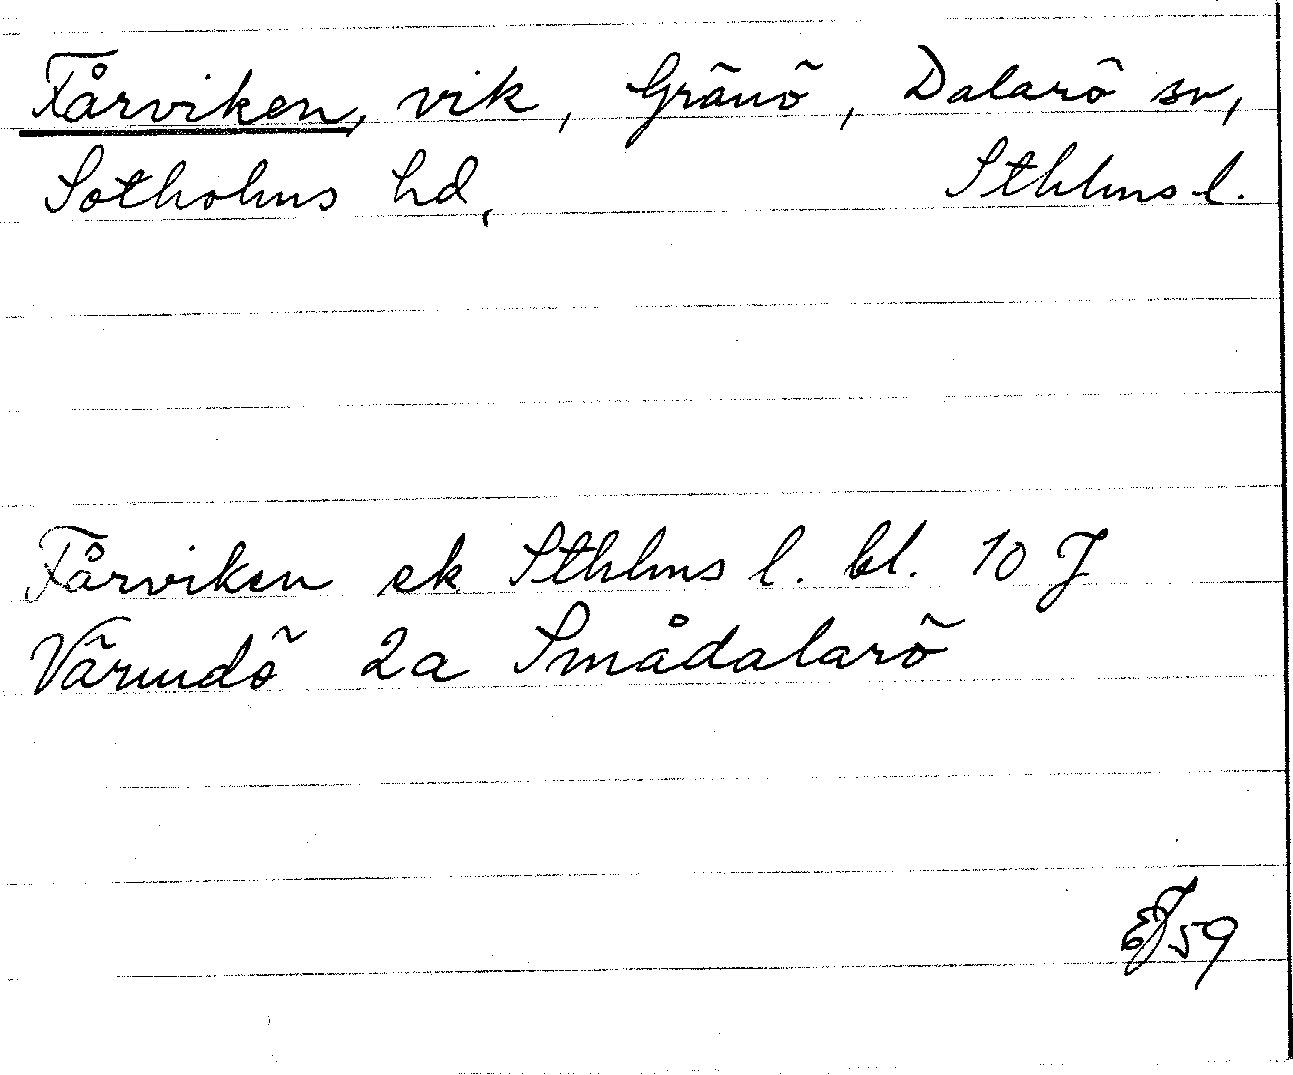 Fårviken, vik, Gränö, Dalarö sn,
Sotholms hd, Sthlms l.
Fårviken ek Sthlms l. bl. 10 J
Värmdö 2a Smådalarö
EJ 59